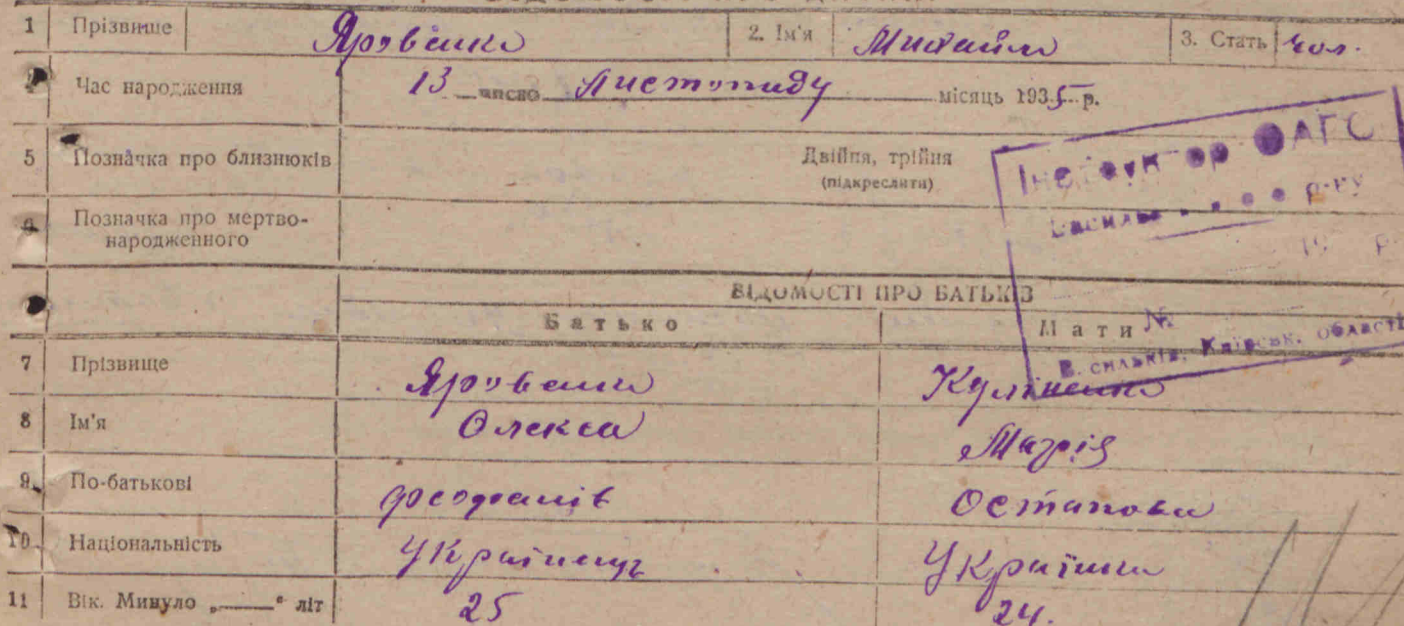 1 Прізвище Яровенко 2. Ім'я Михайло 3. Стать чол.
Час народження 13 число Листопаду місяць 1935 р.
5 Позначка про близнюків Двійня, трійня
(підкреслити)
Позначка про мертво-
народженного
Інструктор ЗАГС
р-ну
19 р.
ВІДОМОСТІ ПРО БАТЬКІВ
Батько Мати
№
Васильків, Київськ. області
7 Прізвище Яровенко
8 Ім'я Олекса Марія
9. По-батькові Феофанів Остапова
10. Національність Українець Українка
11 Вік. Минуло „——“ літ 25 24.